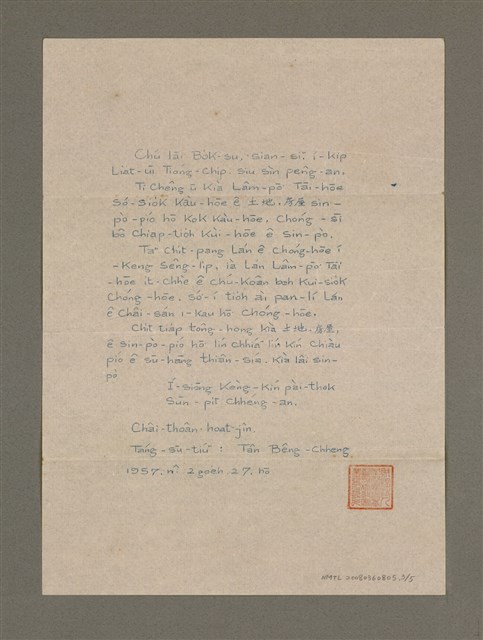 Chú lāi Bo̍k-su, sian-siⁿ í-ki̍p
Lia̍t-ūi Tióng-chip. siu sìn pêng-an.
Tī Chêng ū kià Lâm-pō͘ Tāi-hōe
Só͘-sio̍k Kàu-hōe ê 土地, 房屋 sin-
pò-pió hō͘ Kok Kàu-hōe, Chóng-sī
bô Chiap-tio̍h Kúi-hōe ê Sin-pò.
Taⁿ Chit-pang Lán ê Chóng-hōe í
-Keng Sêng-li̍p, iā Lán Lâm-pō͘ Tāi
-hōe it-chhè ê Chú-Koân boh Kui-sio̍k
Chóng-hōe, Só͘-í tio̍h ài pān-lí Lán
ê Châi-sán í-kau hō͘ Chóng-hōe.
Chit tia̍p tông-hong kià 土地, 房屋,
ê sin-pò-pió hō͘ lín Chhiáⁿ lín kín Chiàu
pió ê sū-hāng thiān-siá. Kià lâi sin-
pò
Í-siōng Kiong-Kín pài-thok
Sūn-pit Chheng-an.
Châi-thoân-hoat-jîn.
Táng-sū-tiúⁿ : Tân Bêng-Chheng
1957. nî 2 goe̍h 27. hō
NMTL 20080360805, 2/5